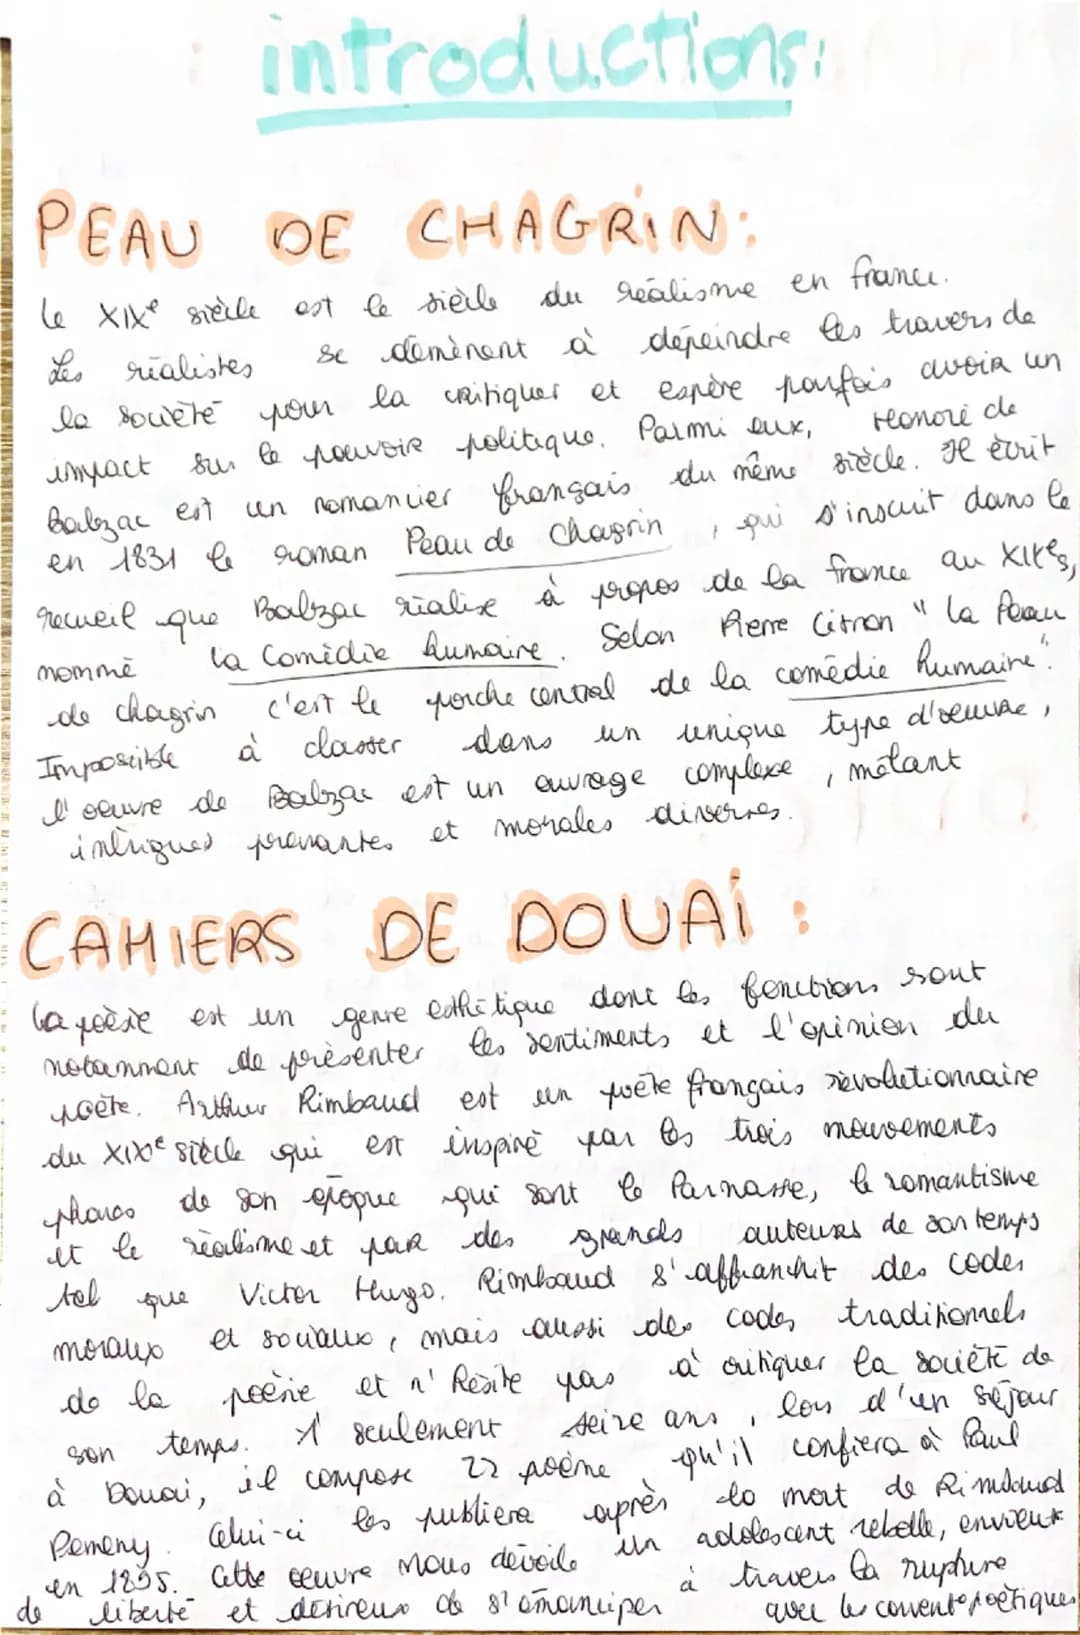 introductions:
PEAU DE CHAGRIN:
Le XIXe siècle est le siècle du réalisme en france.
Les réalistes se démènent à dépeindre les travers de
la société pour la critiquer et espère parfois avoir un
impact sur le pouvoir politique. Parmi eux, Honoré de
Balzac est un romancier français du même siècle. Il écrit
en 1831 le roman Peau de Chagrin, qui s'inscrit dans le
recueil que Balzac réalise à propos de la france au XIXe s,
nommé La Comédie humaine. Selon Pierre Citron "La Peau
de chagrin c'est le porche central de la comédie humaine".
Impossible à classer dans un unique type d'oeuvre,
l'oeuvre de Balzac est un ouvrage complexe, mêlant
intrigues prenantes et morales diverses.
CAHIERS DE DOUAI :
La poésie est un genre esthétique dont les fonctions sont
notamment de présenter les sentiments et l'opinion du
poète. Arthur Rimbaud est un poète français révolutionnaire
du XIXe siècle qui est inspiré par les trois mouvements
phares de son époque qui sont le Parnasse, le romantisme
et le réalisme et par des grands auteurs de son temps
tel que Victor Hugo. Rimbaud s'affranchit des codes
moraux et sociaux, mais aussi des codes traditionnels
de la poésie et n'hésite pas à critiquer la société de
son temps. A seulement seize ans, lors d'un séjour
à Douai, il compose 22 poème qu'il confiera à Paul
Demeny. Celui-ci les publiera après la mort de Rimbaud
en 1895. Cette oeuvre nous dévoile un adolescent rebelle, envieux
de liberté et désireux de s'émanciper à travers la rupture
avec les convent° poétiques